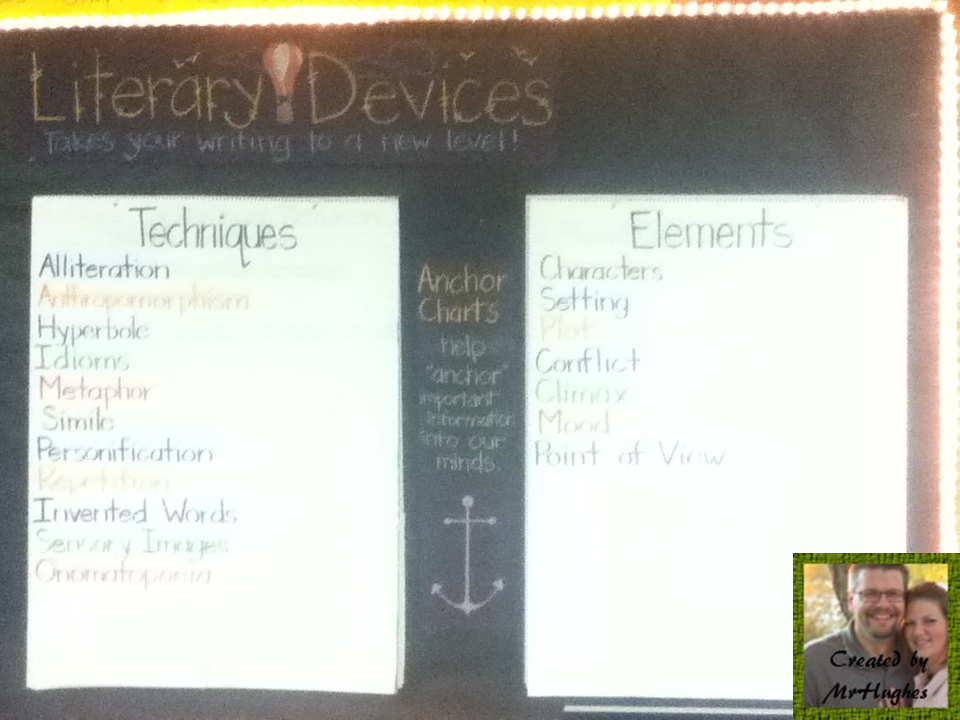 Literary Devices
Takes your writing to a new level!
Techniques
Alliteration
Anthropomorphism
Hyperbole
Idioms
Metaphor
Simile
Personification
Repetition
Invented Words
Sensory Images
Onomatopoeia
Anchor
Charts
help
"anchor"
important
information
into our
minds.
Elements
Characters
Setting
Plot
Conflict
Climax
Mood
Point of View
Created by
MrHughes